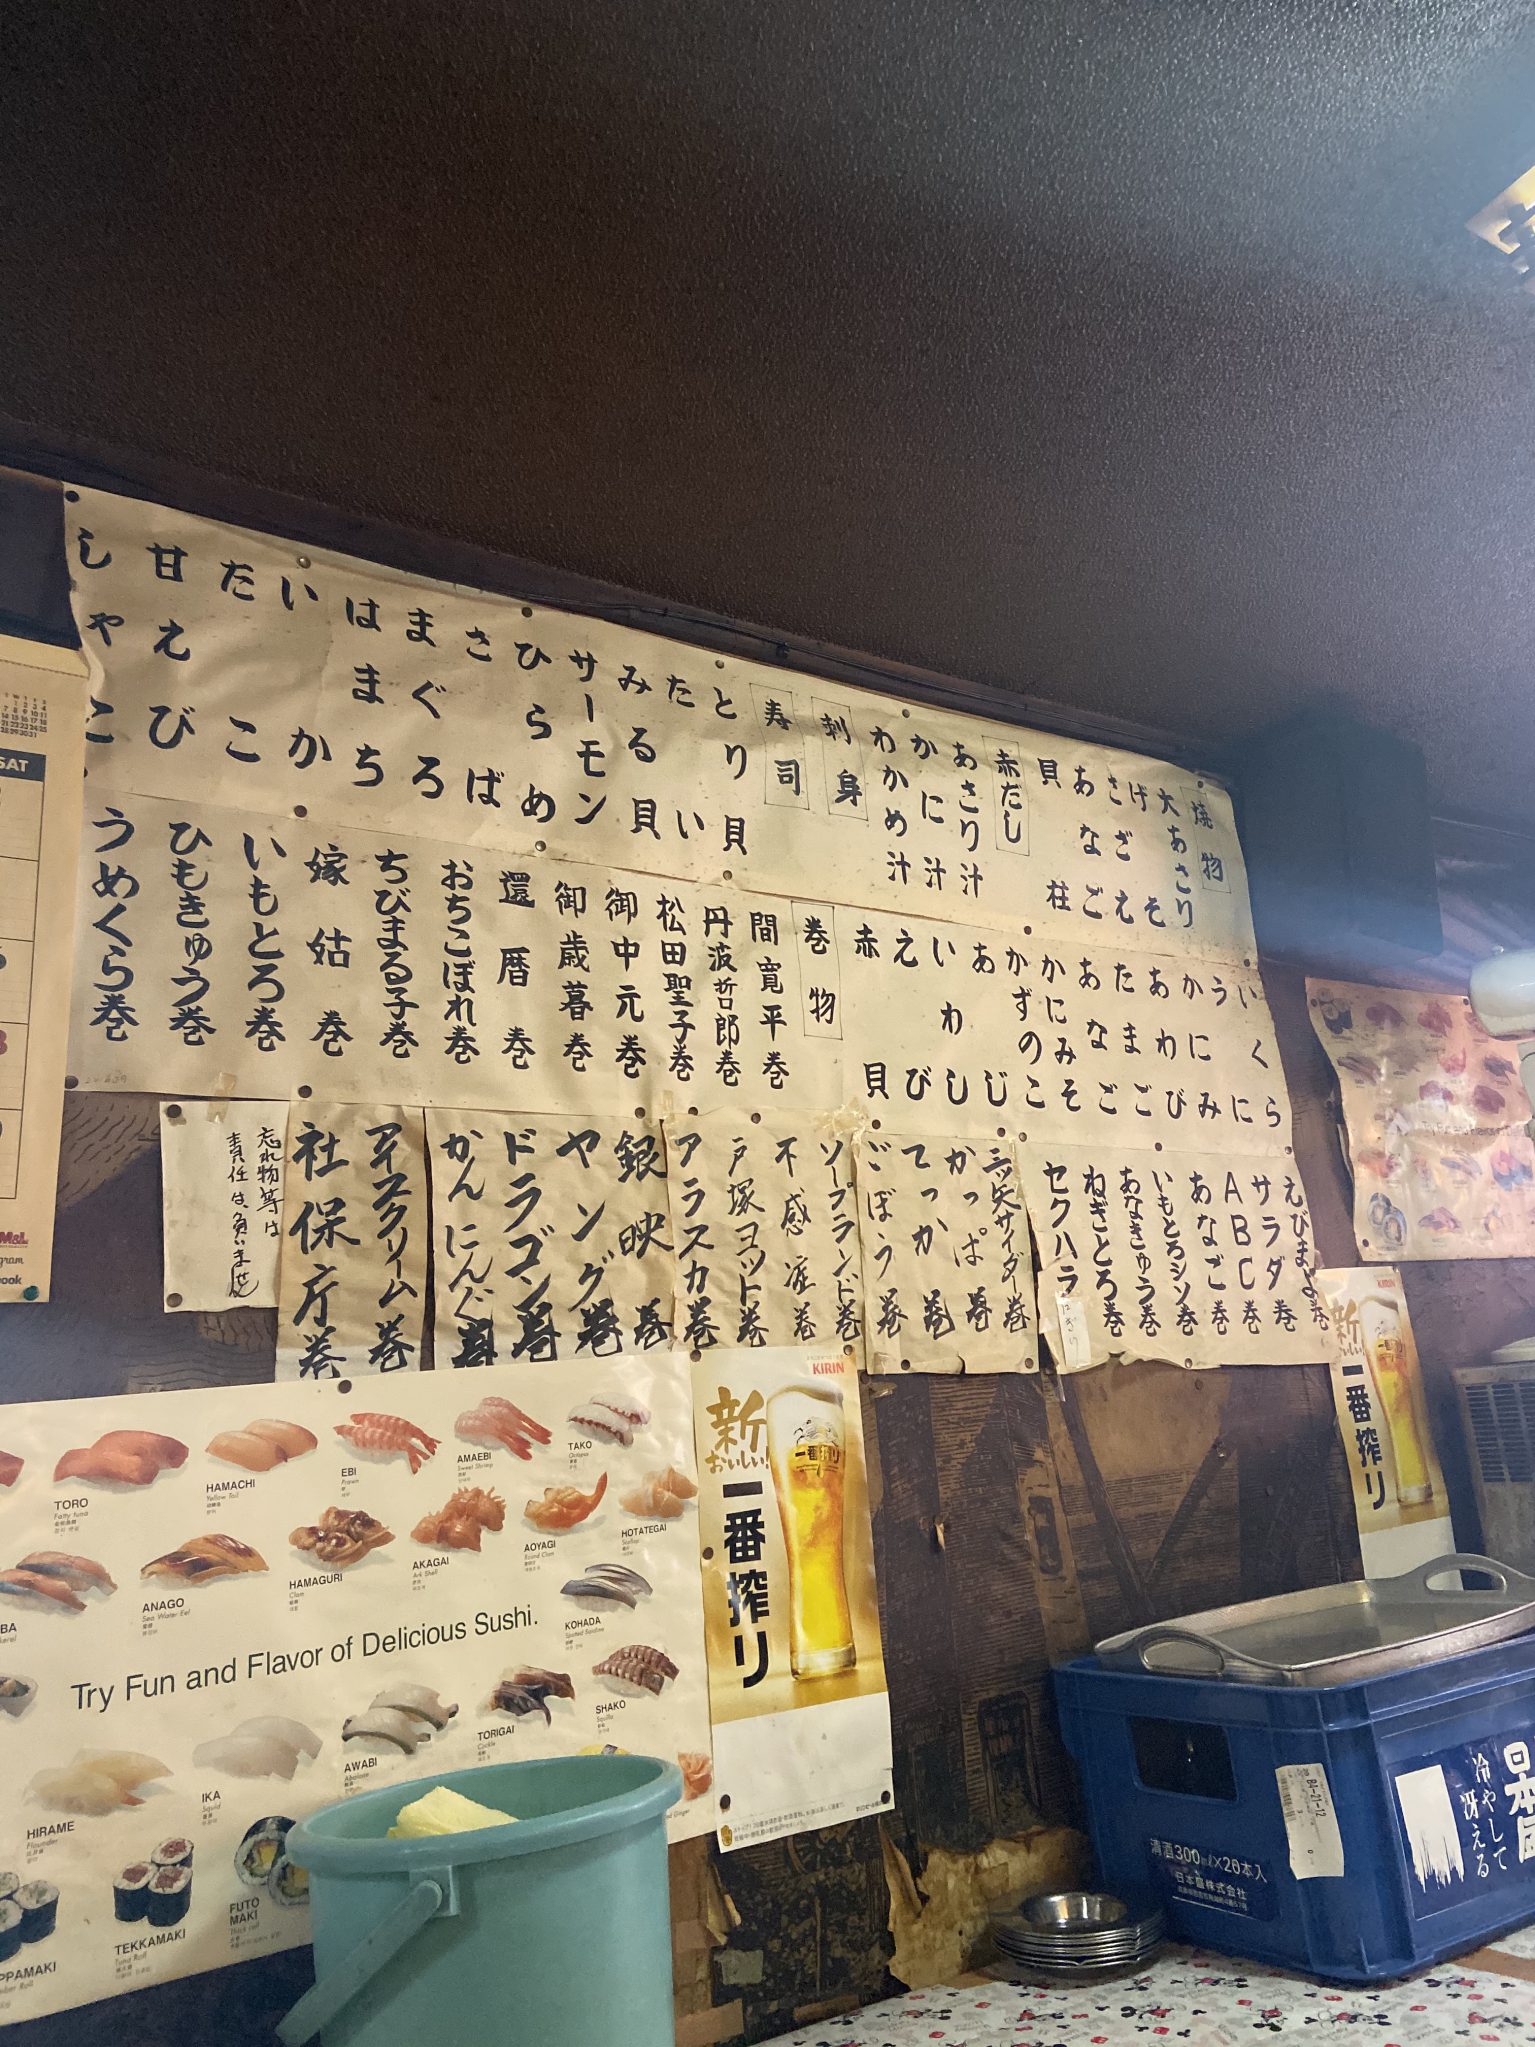 焼物
大あさり
げそ
さざえ
あなご
貝柱
赤だし
あさり汁
かに汁
わかめ汁
刺身
寿司
とり貝
たい
みる貝
サーモン
ひらめ
さば
まぐろ
はまち
いか
たこ
甘えび
しゃこ
いくら
うに
かにみ
あわび
たまご
あなご
かにみそ
かずのこ
あじ
いわし
えび
赤貝
巻物
間寛平巻
丹波哲郎巻
松田聖子巻
御中元巻
御歳暮巻
還暦巻
おちこぼれ巻
ちびまる子巻
嫁姑巻
いもとろ巻
ひもきゅう巻
うめくら巻
えびまよ巻
サラダ巻
ABC巻
あなご巻
いもとろシソ巻
あなきゅう巻
ねぎとろ巻
セクハラ
にぎり
三ツ矢サイダー巻
かっぱ巻
てっか巻
ごぼう巻
ソープランド巻
不感症巻
戸塚ヨット巻
アラスカ巻
銀映巻
ヤング巻
ドラゴン巻
かんにんぐ巻
アイスクリーム巻
社保庁巻
忘れ物等は
責任は負いません
SAT
TORO
Fatty tuna
HAMACHI
Yellow Tail
EBI
Prawn
AMAEBI
Sweet Shrimp
TAKO
Octopus
ANAGO
Sea Water Eel
HAMAGURI
Clam
AKAGAI
Ark Shell
AOYAGI
Round Clam
HOTATEGAI
Scallop
KOHADA
Spotted Sardine
Try Fun and Flavor of Delicious Sushi.
HIRAME
Flounder
IKA
Squid
AWABI
Abalone
TORIGAI
Cockle
SHAKO
Squilla
TEKKAMAKI
Tuna Roll
FUTO
MAKI
Thick roll
KIRIN
新
おいしい!
一番搾り
一番搾り
KIRIN
新
一番搾り
84-21-12
清酒300ml×20本入
日本盛株式会社
冷やして
冴える